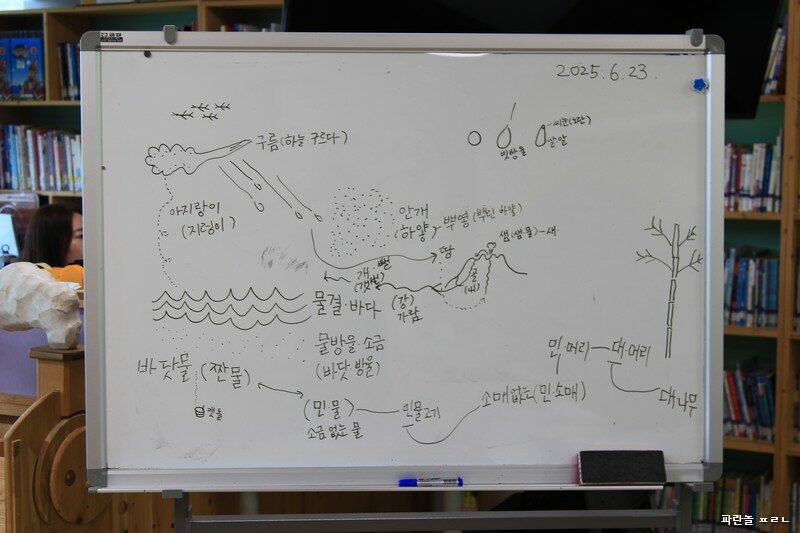 2025. 6. 23.
구름(하늘·구르다)
빗방울
쌀알
아지랑이
(지렁이)
안개
(하양)
뿌옇
샘(샘물)-새
땅
뻘
개
(갯벌)
골
물결 바다
(강)
가람
물방울 소금
(바닷 방울)
바닷물 (짠물)
맷돌
(민물)
소금 없는 물
민물고기
소매 없는(민소매)
민·머리
대·머리
대나무
파란놀 ㅍㄹㄴ